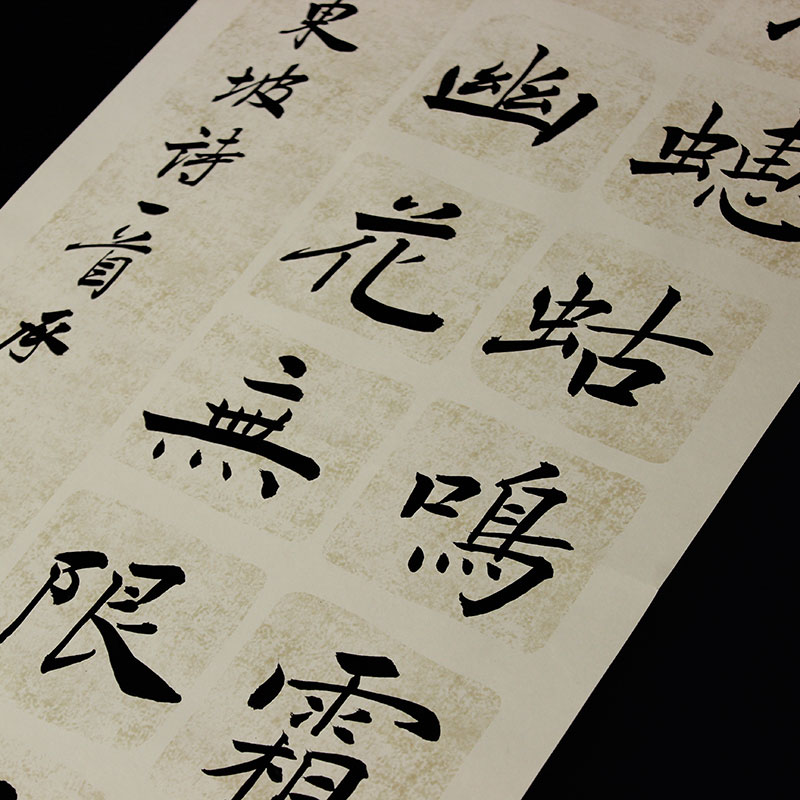 蟪蛄鳴霜
幽花無限
東坡詩一首承